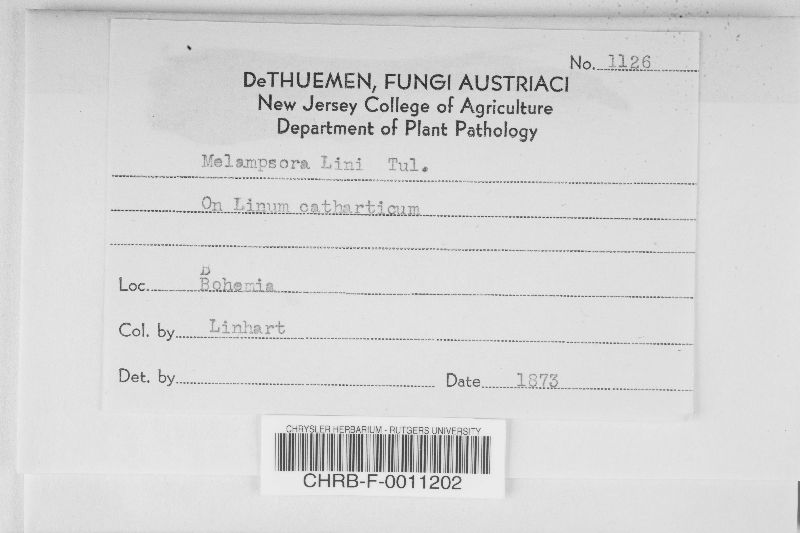 No. 1126
DeTHUEMEN, FUNGI AUSTRIACI
New Jersey College of Agriculture
Department of Plant Pathology
Melampsora Lini Tul.
On Linum catharticum
B
Loc. Bohemia
Col. by Linhart
Det. by Date 1873
CHRYSLER HERBARIUM - RUTGERS UNIVERSITY
CHRB-F-0011202